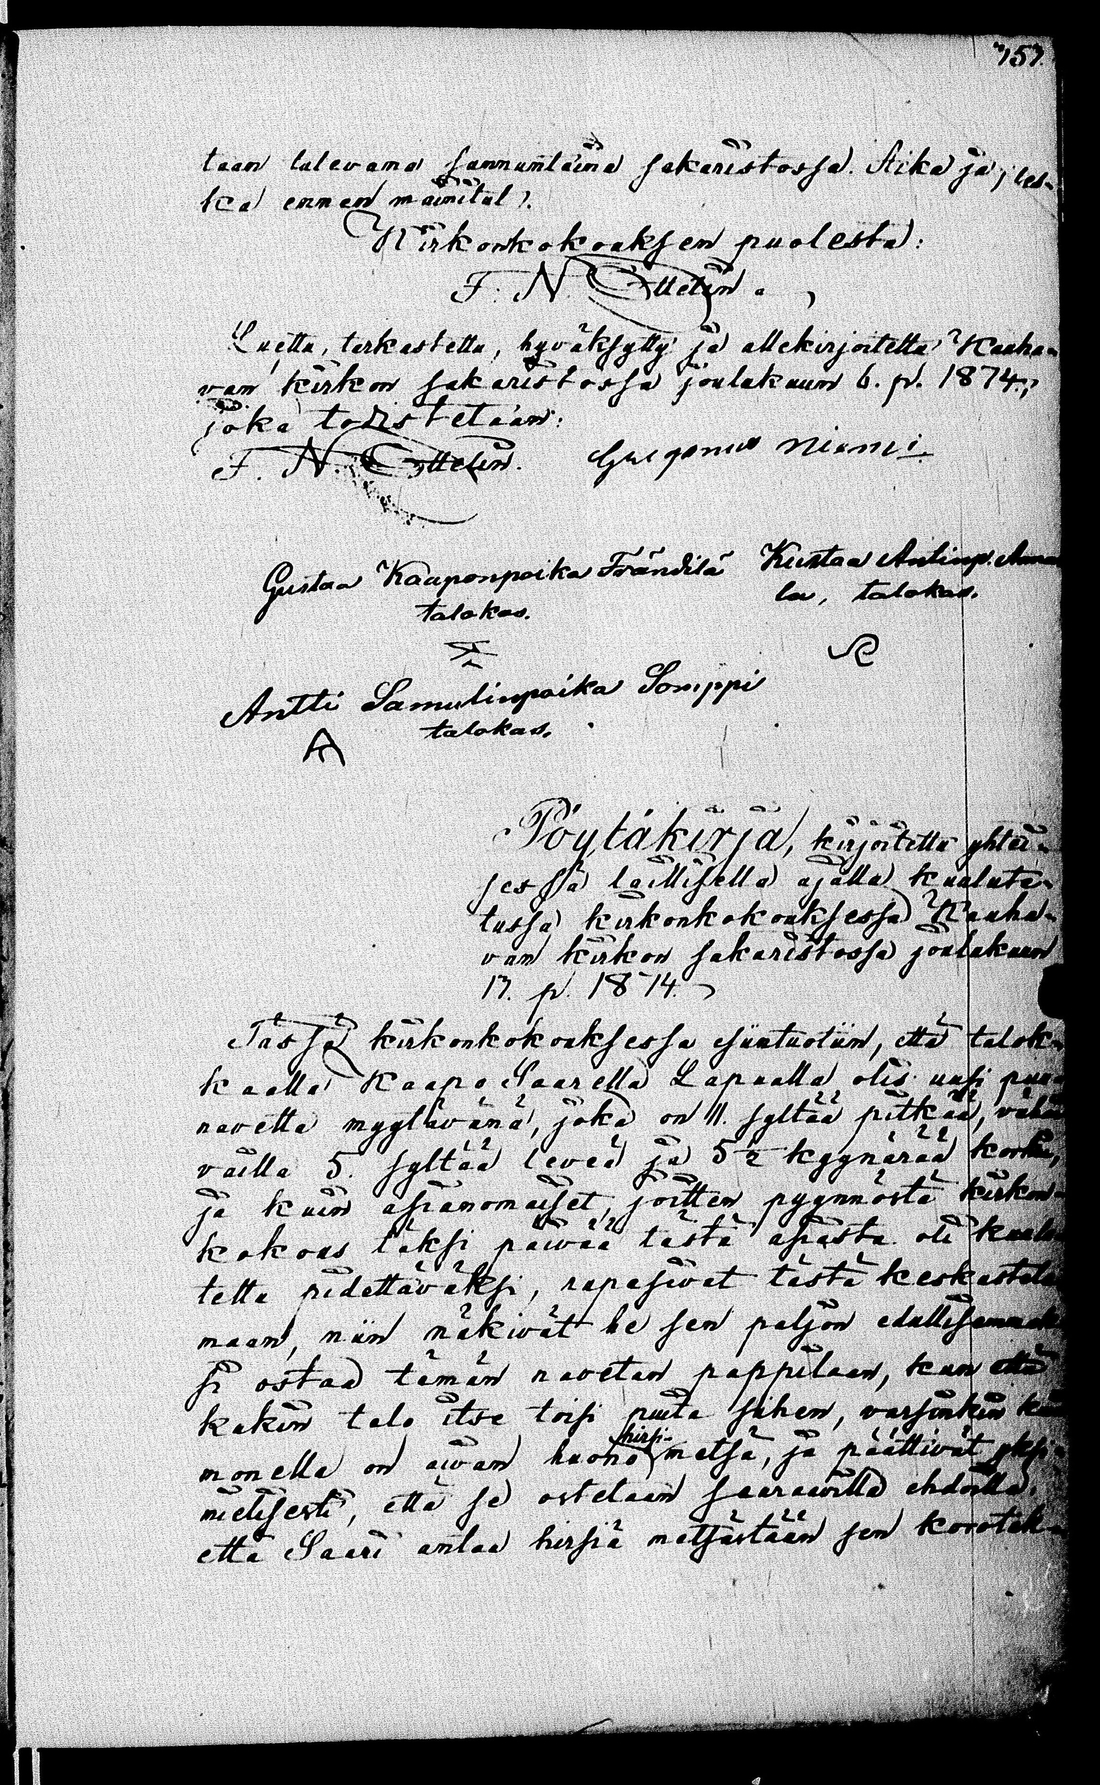 157.
taan tulevana sunnuntaina sakaristossa. Aika ja
ka ennen mainitut.
Kirkonkokouksen puolesta:
F. N. Ottelin.
Luettu, tarkastettu, hyväksytty ja allekirjoitettu Kauha-
van kirkon sakaristossa joulukuun 6. p. 1874,
joka todistetaan:
F. N. Ottelin. Gregorius Niemi
Gustaa Kaaponpoika Frändilä Kustaa Antinp.
la, talokas.
talokas.
Antti Samulinpoika Somppi
talokas.
A
Pöytäkirja, kirjoitettu yhtei-
sessä laillisella ajalla kuulute-
tussa kirkonkokouksessa Kauha-
van kirkon sakaristossa joulukuun
17. p. 1874.
Tässä kirkonkokouksessa esiintuotiin, että talok-
kaalla Kaapo Saarella Lapualla olis uusi puu-
navetta myytävänä, joka on 11. syltää pitkää, vähä
vailla 5. syltää leveä ja 5½ kyynärää korkea,
ja kuin asianomaiset, joitten pyynnöstä kirkon-
kokous täksi päivää tästä asiasta oli kuulu
tettu pidettäväksi, rupesivat tästä keskustele
maan, niin näkivät he sen paljon edullisemmak
si ostaa tämän navetan pappilaan, kun että
kukin talo itse toisi puita siihen, varsinkin kuin
monella on aivan huono hirsi-metsä, ja päättivät yksi-
mielisesti, että se ostetaan seuraavilla ehdoilla.
että Saari antaa hirsiä metsästään sen korotuk-